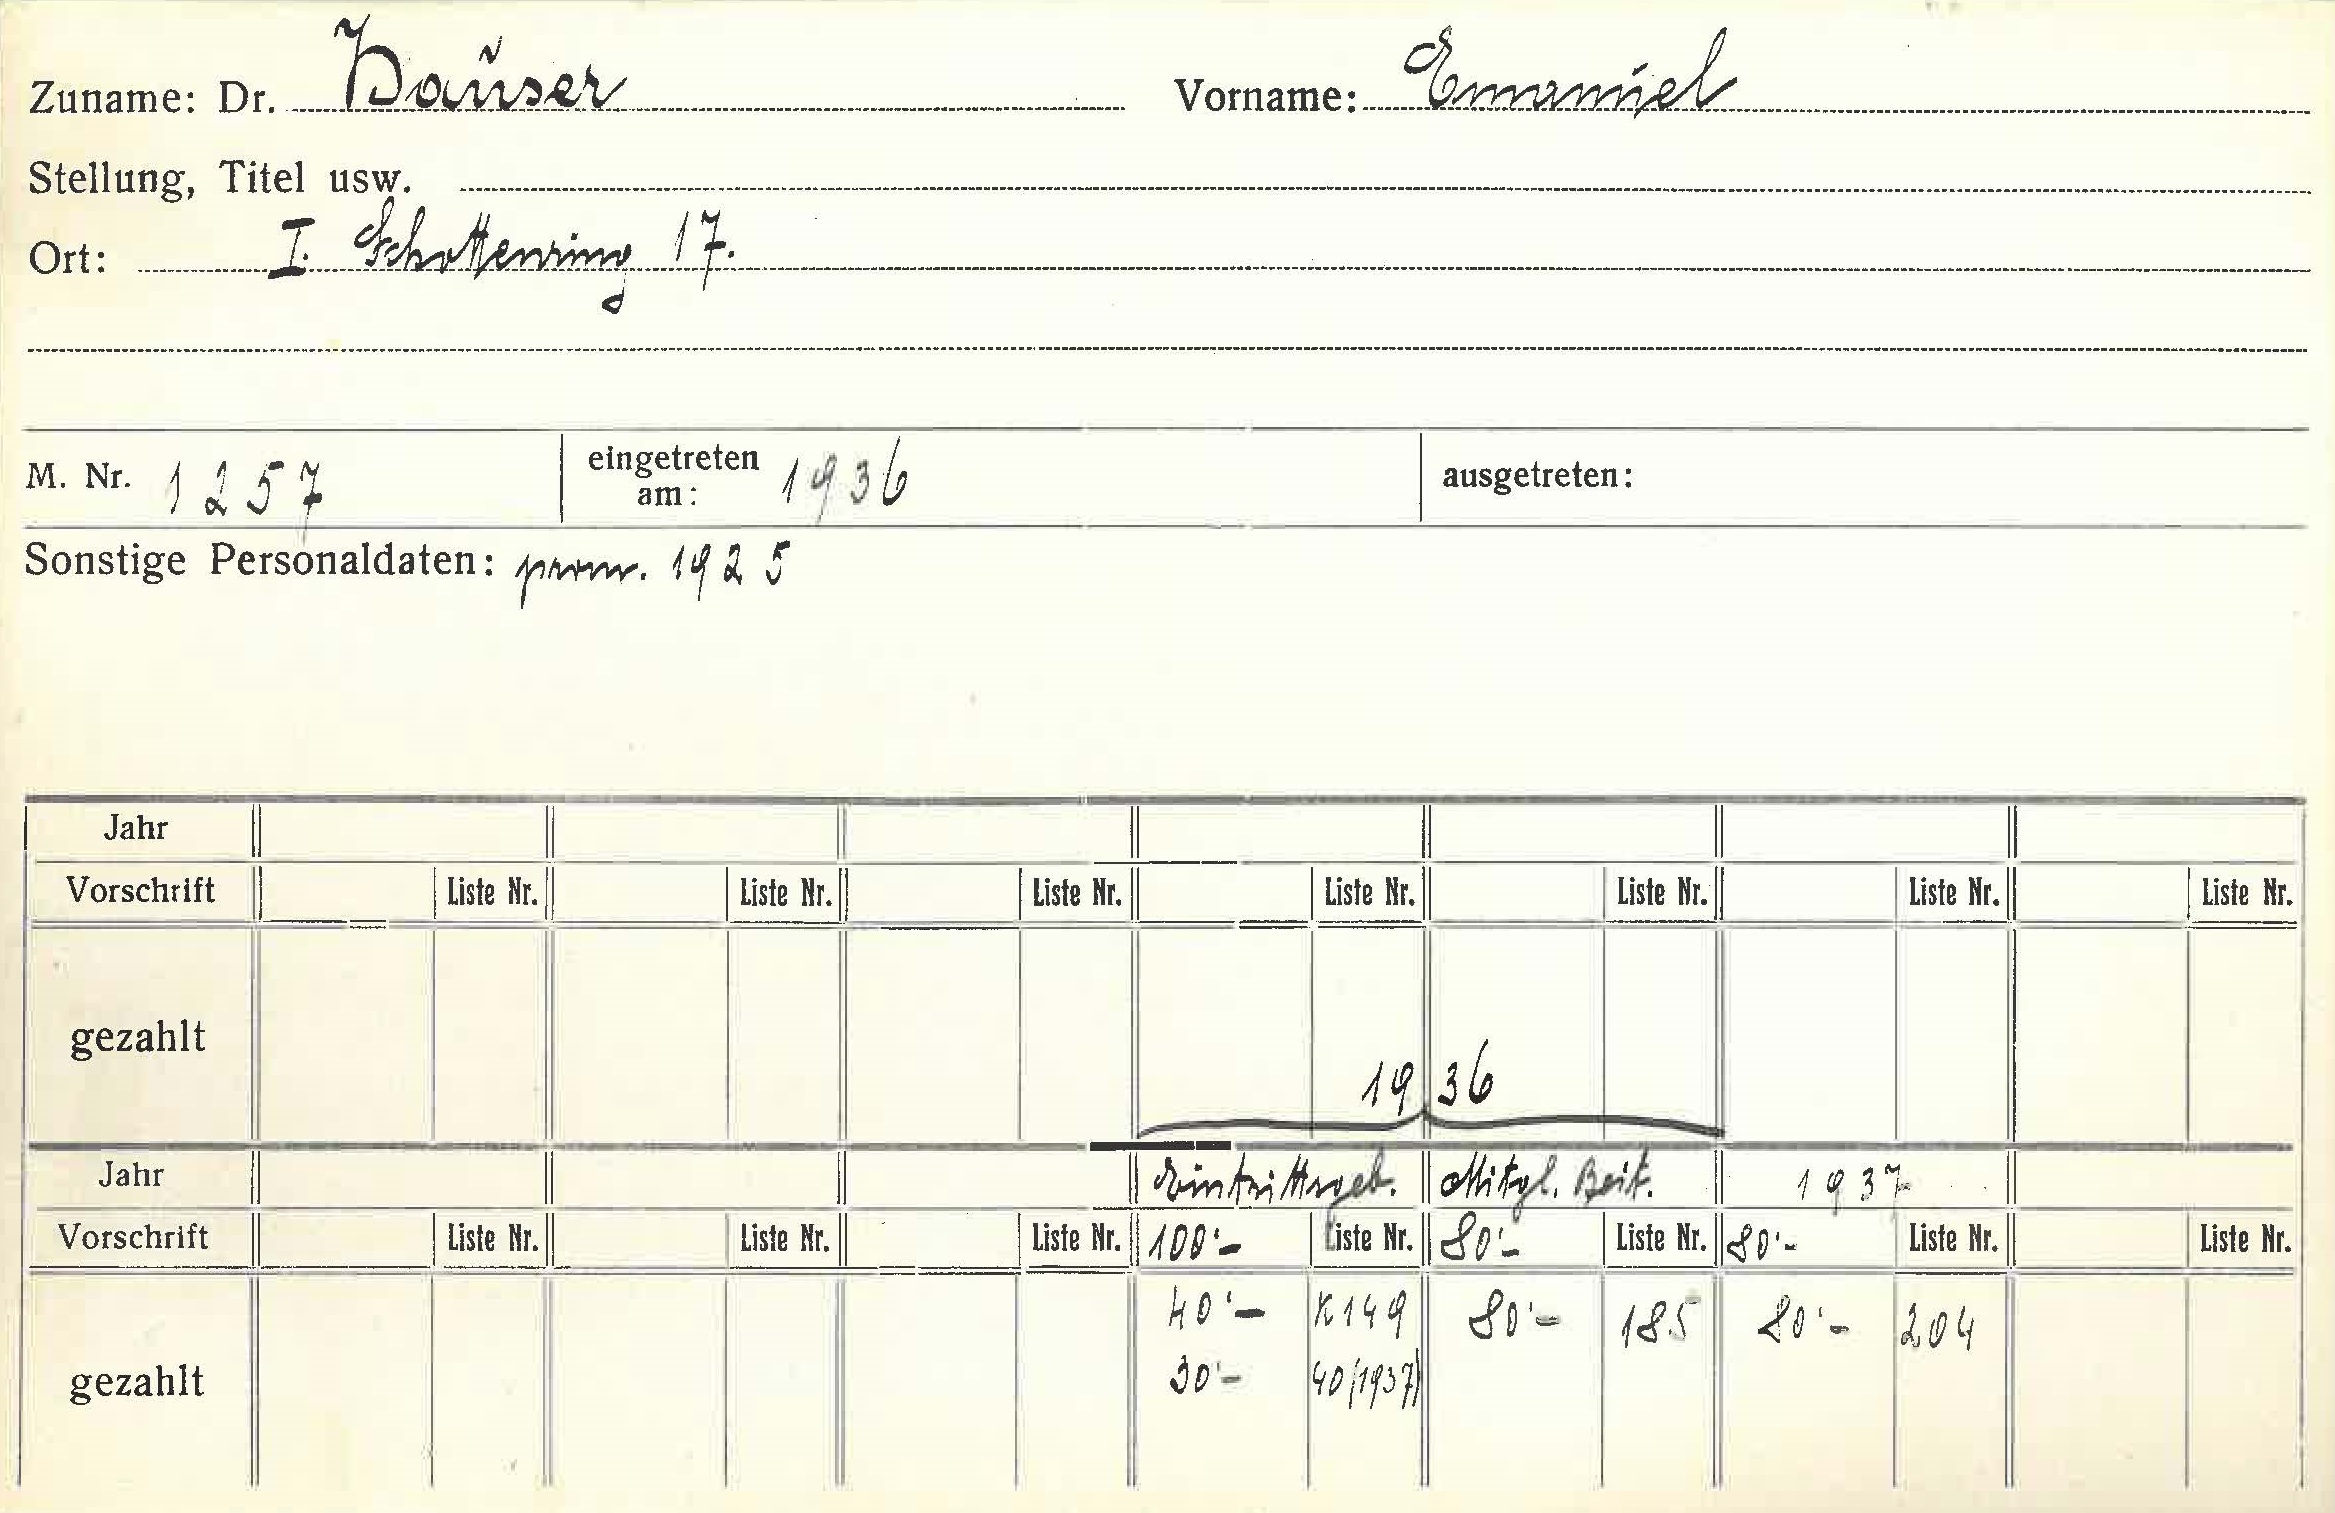 Zuname: Dr. Hauser Vorname: Emanuel
Stellung, Titel usw.
Ort: I. Schottenring 17.
M. Nr. 1257 eingetreten am: 1936 ausgetreten:
Sonstige Personaldaten: prom. 1925
Jahr
Vorschrift Liste Nr. Liste Nr. Liste Nr. Liste Nr. Liste Nr. Liste Nr. Liste Nr.
gezahlt
1936
Jahr Eintrittsgeb. Mitgl. Beit. 1937
Vorschrift Liste Nr. Liste Nr. Liste Nr. 100'- Liste Nr. 80'- Liste Nr. 80'- Liste Nr. Liste Nr.
40'- K149 80'- 185 80'- 204
30'- 40/1937)
gezahlt